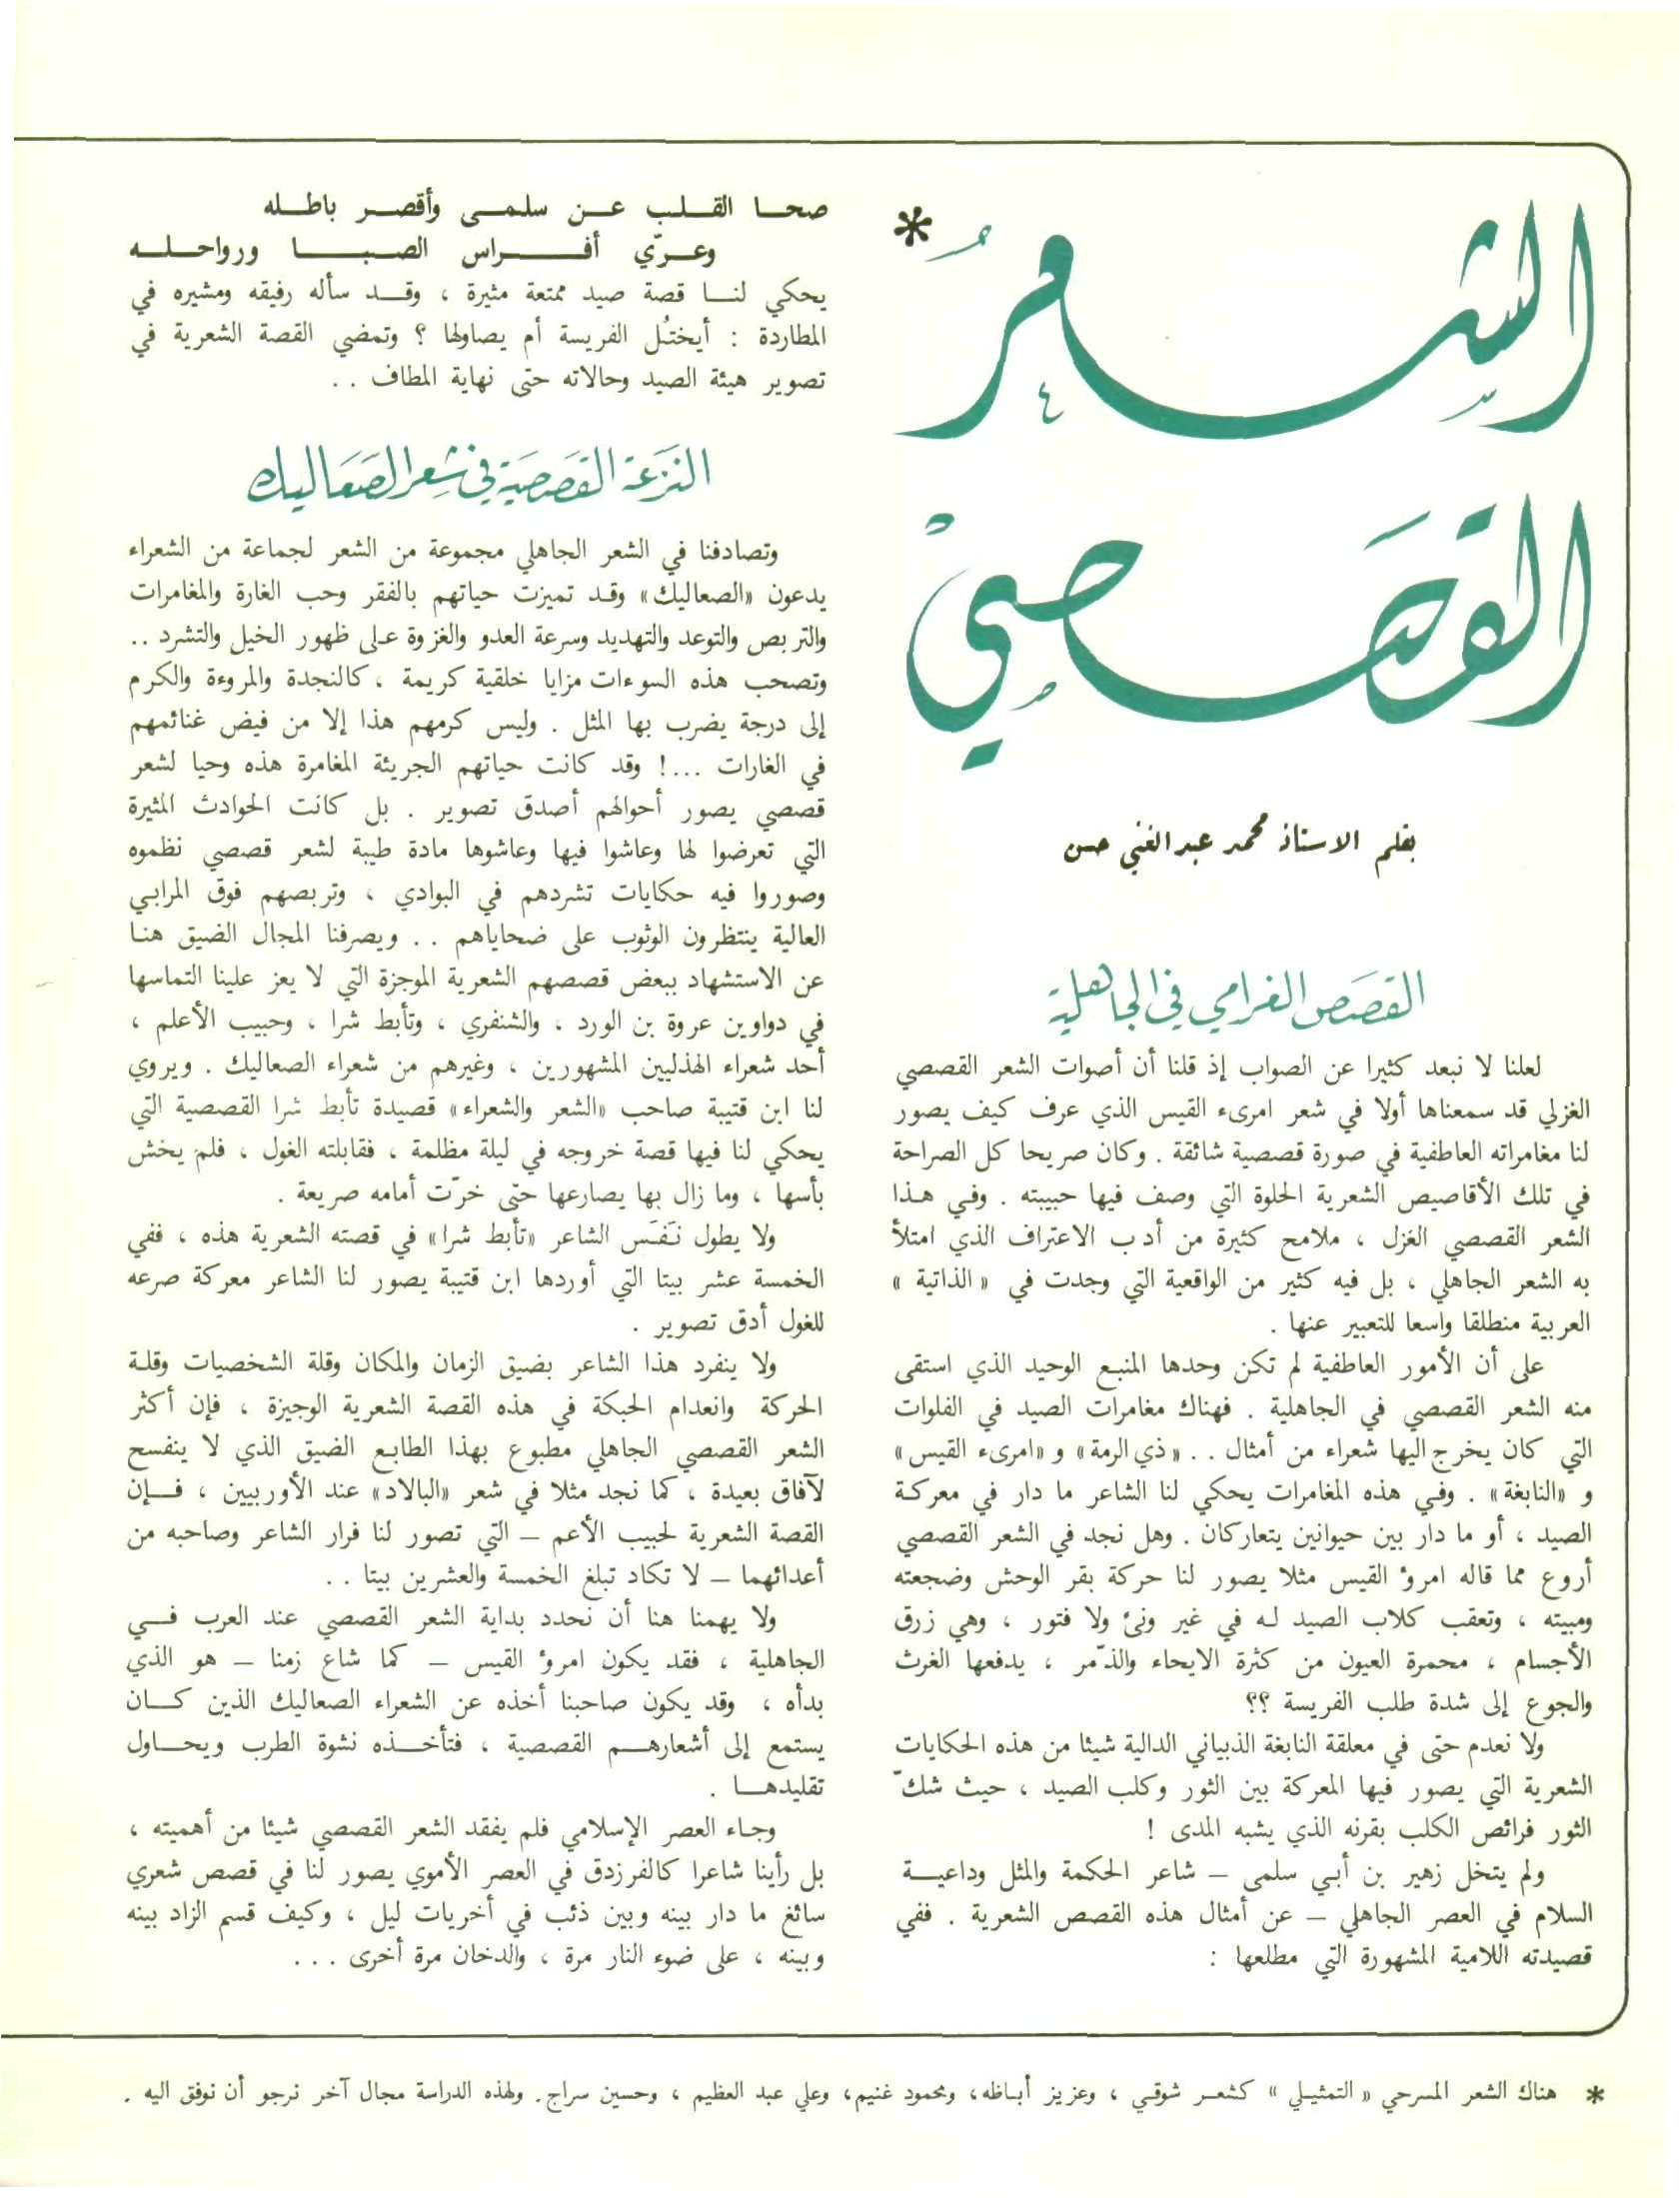 الشعر *
القصصي
بقلم الاستاذ محمد عبد الغني حسن
القصص الغرامي في الجاهلية
لعلنا لا نبعد كثيرا عن الصواب إذ قلنا أن أصوات الشعر القصصي
الغزلي قد سمعناها أولا في شعر امرىء القيس الذي عرف كيف يصور
لنا مغامراته العاطفية في صورة قصصية شائقة . وكان صريحا كل الصراحة
في تلك الأقاصيص الشعرية الحلوة التي وصف فيها حبيبته . وفي هذا
الشعر القصصي الغزل ، ملامح كثيرة من أدب الاعتراف الذي امتلأ
به الشعر الجاهلي ، بل فيه كثير من الواقعية التي وجدت في « الذاتية »
العربية منطلقا واسعا للتعبير عنها .
على أن الأمور العاطفية لم تكن وحدها المنبع الوحيد الذي استقى
منه الشعر القصصي في الجاهلية . فهناك مغامرات الصيد في الفلوات
التي كان يخرج اليها شعراء من أمثال . . «ذي الرمة» و «امرىء القيس»
و «النابغة» . وفي هذه المغامرات يحكي لنا الشاعر ما دار في معركة
الصيد ، أو ما دار بين حيوانين يتعاركان . وهل نجد في الشعر القصصي
أروع مما قاله امرؤ القيس مثلا يصور لنا حركة بقر الوحش وضجعته
ومبيته ، وتعقب كلاب الصيد له في غير ونىً ولا فتور ، وهي زرق
الأجسام ، محمرة العيون من كثرة الايحاء والذّمر ، يدفعها الغرث
والجوع إلى شدة طلب الفريسة ؟؟
ولا نعدم حتى في معلقة النابغة الذبياني الدالية شيئا من هذه الحكايات
الشعرية التي يصور فيها المعركة بين الثور وكلب الصيد ، حيث شكّ
الثور فرائص الكلب بقرنه الذي يشبه المدى !
ولم يتخل زهير بن أبي سلمى – شاعر الحكمة والمثل وداعيـــة
السلام في العصر الجاهلي – عن أمثال هذه القصص الشعرية . ففي
قصيدته اللامية المشهورة التي مطلعها :
صحـا القـلـب عـن سلمـى وأقصـر باطـلـه
وعـرّي أفـراس الصبـا ورواحلـه
يحكي لنـا قصة صيد ممتعة مثيرة ، وقـد سأله رفيقه ومشيره في
المطاردة : أيختُل الفريسة أم يصاولها ؟ وتمضي القصة الشعرية في
تصوير هيئة الصيد وحالاته حتى نهاية المطاف . .
النزعة القصصية في شعر الصعاليك
وتصادفنا في الشعر الجاهلي مجموعة من الشعر لجماعة من الشعراء
يدعون «الصعاليك» وقد تميزت حياتهم بالفقر وحب الغارة والمغامرات
والتربص والتوعد والتهديد وسرعة العدو والغزوة على ظهور الخيل والتشرد ..
وتصحب هذه السوءات مزايا خلقية كريمة ، كالنجدة والمروءة والكرم
إلى درجة يضرب بها المثل . وليس كرمهم هذا إلا من فيض غنائمهم
في الغارات ...! وقد كانت حياتهم الجريئة المغامرة هذه وحيا لشعر
قصصي يصور أحوالهم أصدق تصوير . بل كانت الحوادث المثيرة
التي تعرضوا لها وعاشوا فيها وعاشوها مادة طيبة لشعر قصصي نظموه
وصوروا فيه حكايات تشردهم في البوادي ، وتربصهم فوق المرابي
العالية ينتظرون الوثوب على ضحاياهم . . ويصرفنا المجال الضيق هنـا
عن الاستشهاد ببعض قصصهم الشعرية الموجزة التي لا يعز علينا التماسها
في دواوين عروة بن الورد ، والشنفري ، وتأبط شرا ، وحبيب الأعلم ،
أحد شعراء الهذليين المشهورين ، وغيرهم من شعراء الصعاليك . ويروي
لنا ابن قتيبة صاحب «الشعر والشعراء» قصيدة تأبط شرا القصصية التي
يحكي لنا فيها قصة خروجه في ليلة مظلمة ، فقابلته الغول ، فلم يخش
بأسها ، وما زال بها يصارعها حتى خرّت أمامه صريعة .
ولا يطول نَفَس الشاعر «تأبط شرا» في قصته الشعرية هذه ، ففي
الخمسة عشر بيتا التي أوردها ابن قتيبة يصور لنا الشاعر معركة صرعه
للغول أدق تصوير .
ولا ينفرد هذا الشاعر بضيق الزمان والمكان وقلة الشخصيات وقلـة
الحركة وانعدام الحبكة في هذه القصة الشعرية الوجيزة ، فإن أكثر
الشعر القصصي الجاهلي مطبوع بهذا الطابع الضيق الذي لا ينفسح
لآفاق بعيدة ، كما نجد مثلا في شعر «البالاد» عند الأوربيين ، فـإن
القصة الشعرية لحبيب الأعم – التي تصور لنا فرار الشاعر وصاحبه من
أعدائهما – لا تكاد تبلغ الخمسة والعشرين بيتا . .
ولا يهمنا هنا أن نحدد بداية الشعر القصصي عند العرب فـي
الجاهلية ، فقد يكون امرؤ القيس – كما شاع زمنا – هو الذي
بدأه ، وقد يكون صاحبنا أخذه عن الشعراء الصعاليك الذين كـان
يستمع إلى أشعارهـم القصصية ، فتأخـذه نشوة الطرب ويحـاول
تقليدهـا .
وجاء العصر الإسلامي فلم يفقد الشعر القصصي شيئا من أهميته ،
بل رأينا شاعرا كالفرزدق في العصر الأموي يصور لنا في قصص شعري
سائغ ما دار بينه وبين ذئب في أخريات ليل ، وكيف قسم الزاد بينه
وبينه ، على ضوء النار مرة ، والدخان مرة أخرى . . .
* هناك الشعر المسرحي « التمثيلي » كشعـر شوقي ، وعزيز أباظه، ومحمود غنيم، وعلي عبد العظيم ، وحسين سراج. ولهذه الدراسة مجال آخر نرجو أن نوفق اليه .